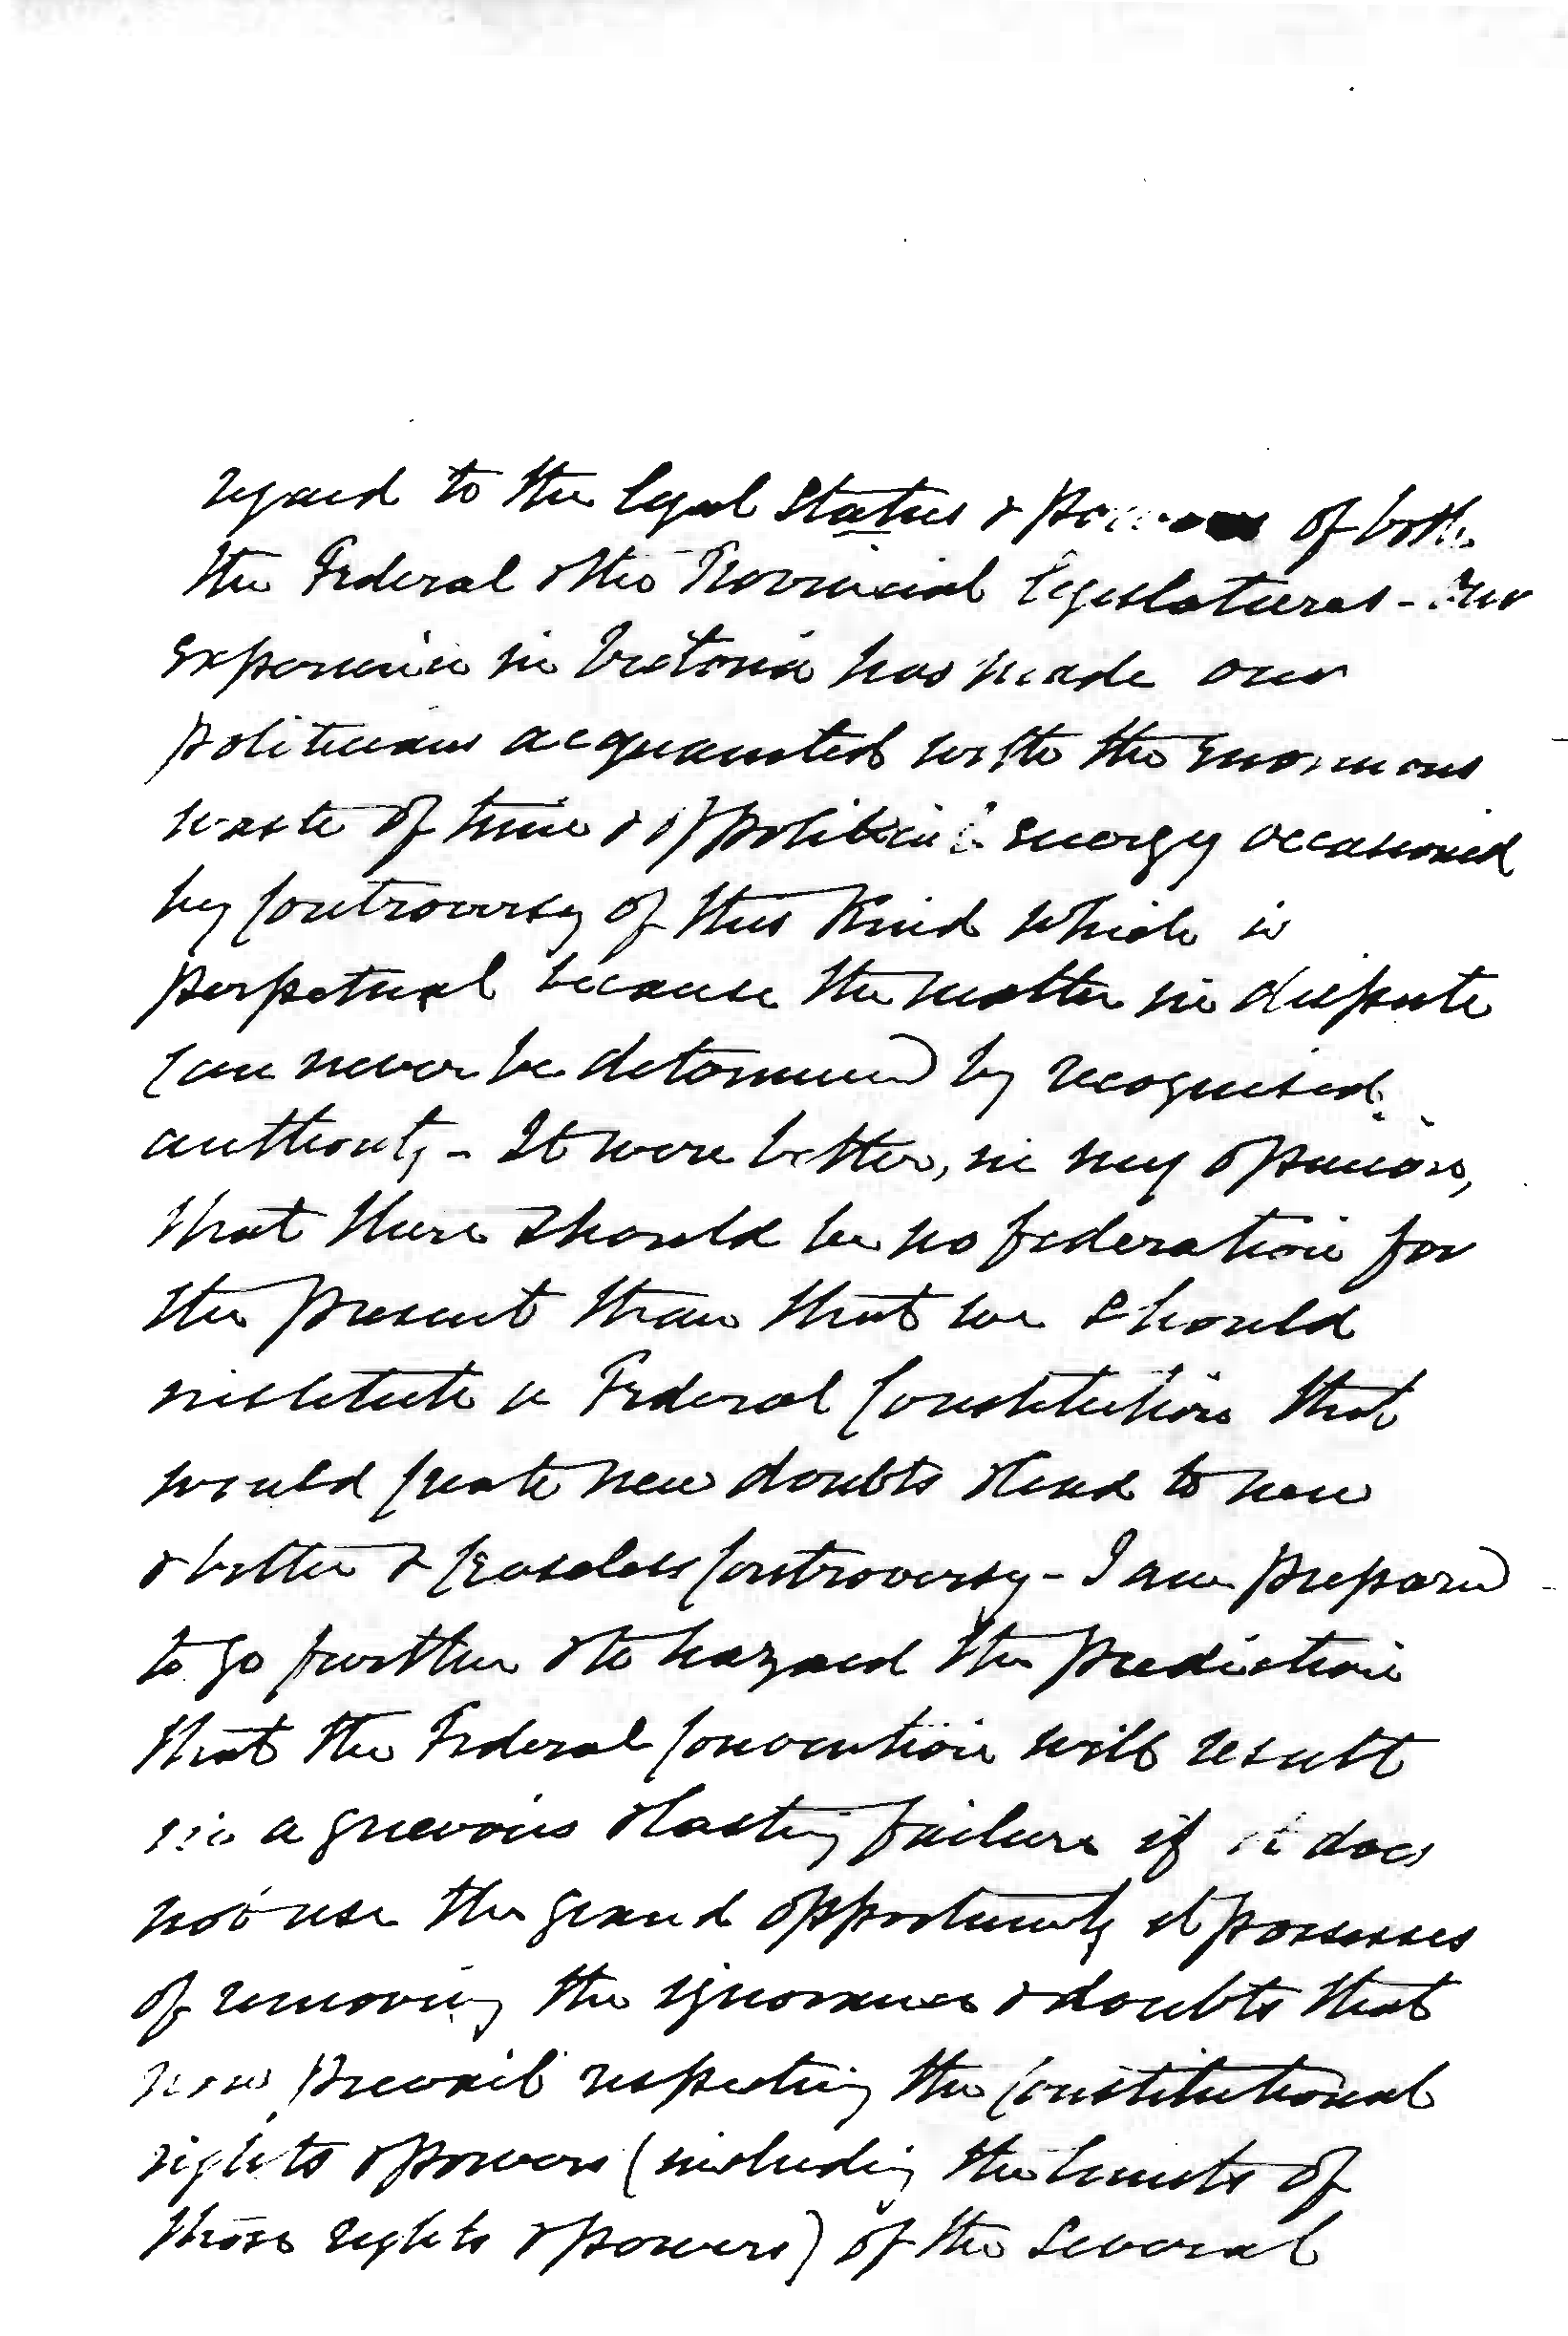 regard to the legal status & powers of both
the Federal & the Provincial Legislatures - Our
experience in Victoria has made our
politicians acquainted with the enormous
waste of time & of political energy occasioned
by controversy of this kind which is
perpetual because the matter in dispute
can never be determined by recognised
authority - It were better, in my opinion,
that there should be no federation for
the present than that we should
institute a Federal Constitution that
would create new doubts & lead to new
& bitter & ceaseless controversy - I am prepared
to go further & to hazard the prediction
that the Federal Convention will result
in a grievous & lasting failure if it does
not use the grand opportunity it possesses
of removing the ignorance & doubts that
now prevail respecting the constitutional
rights & powers (including the limits of
those rights & powers) of the several